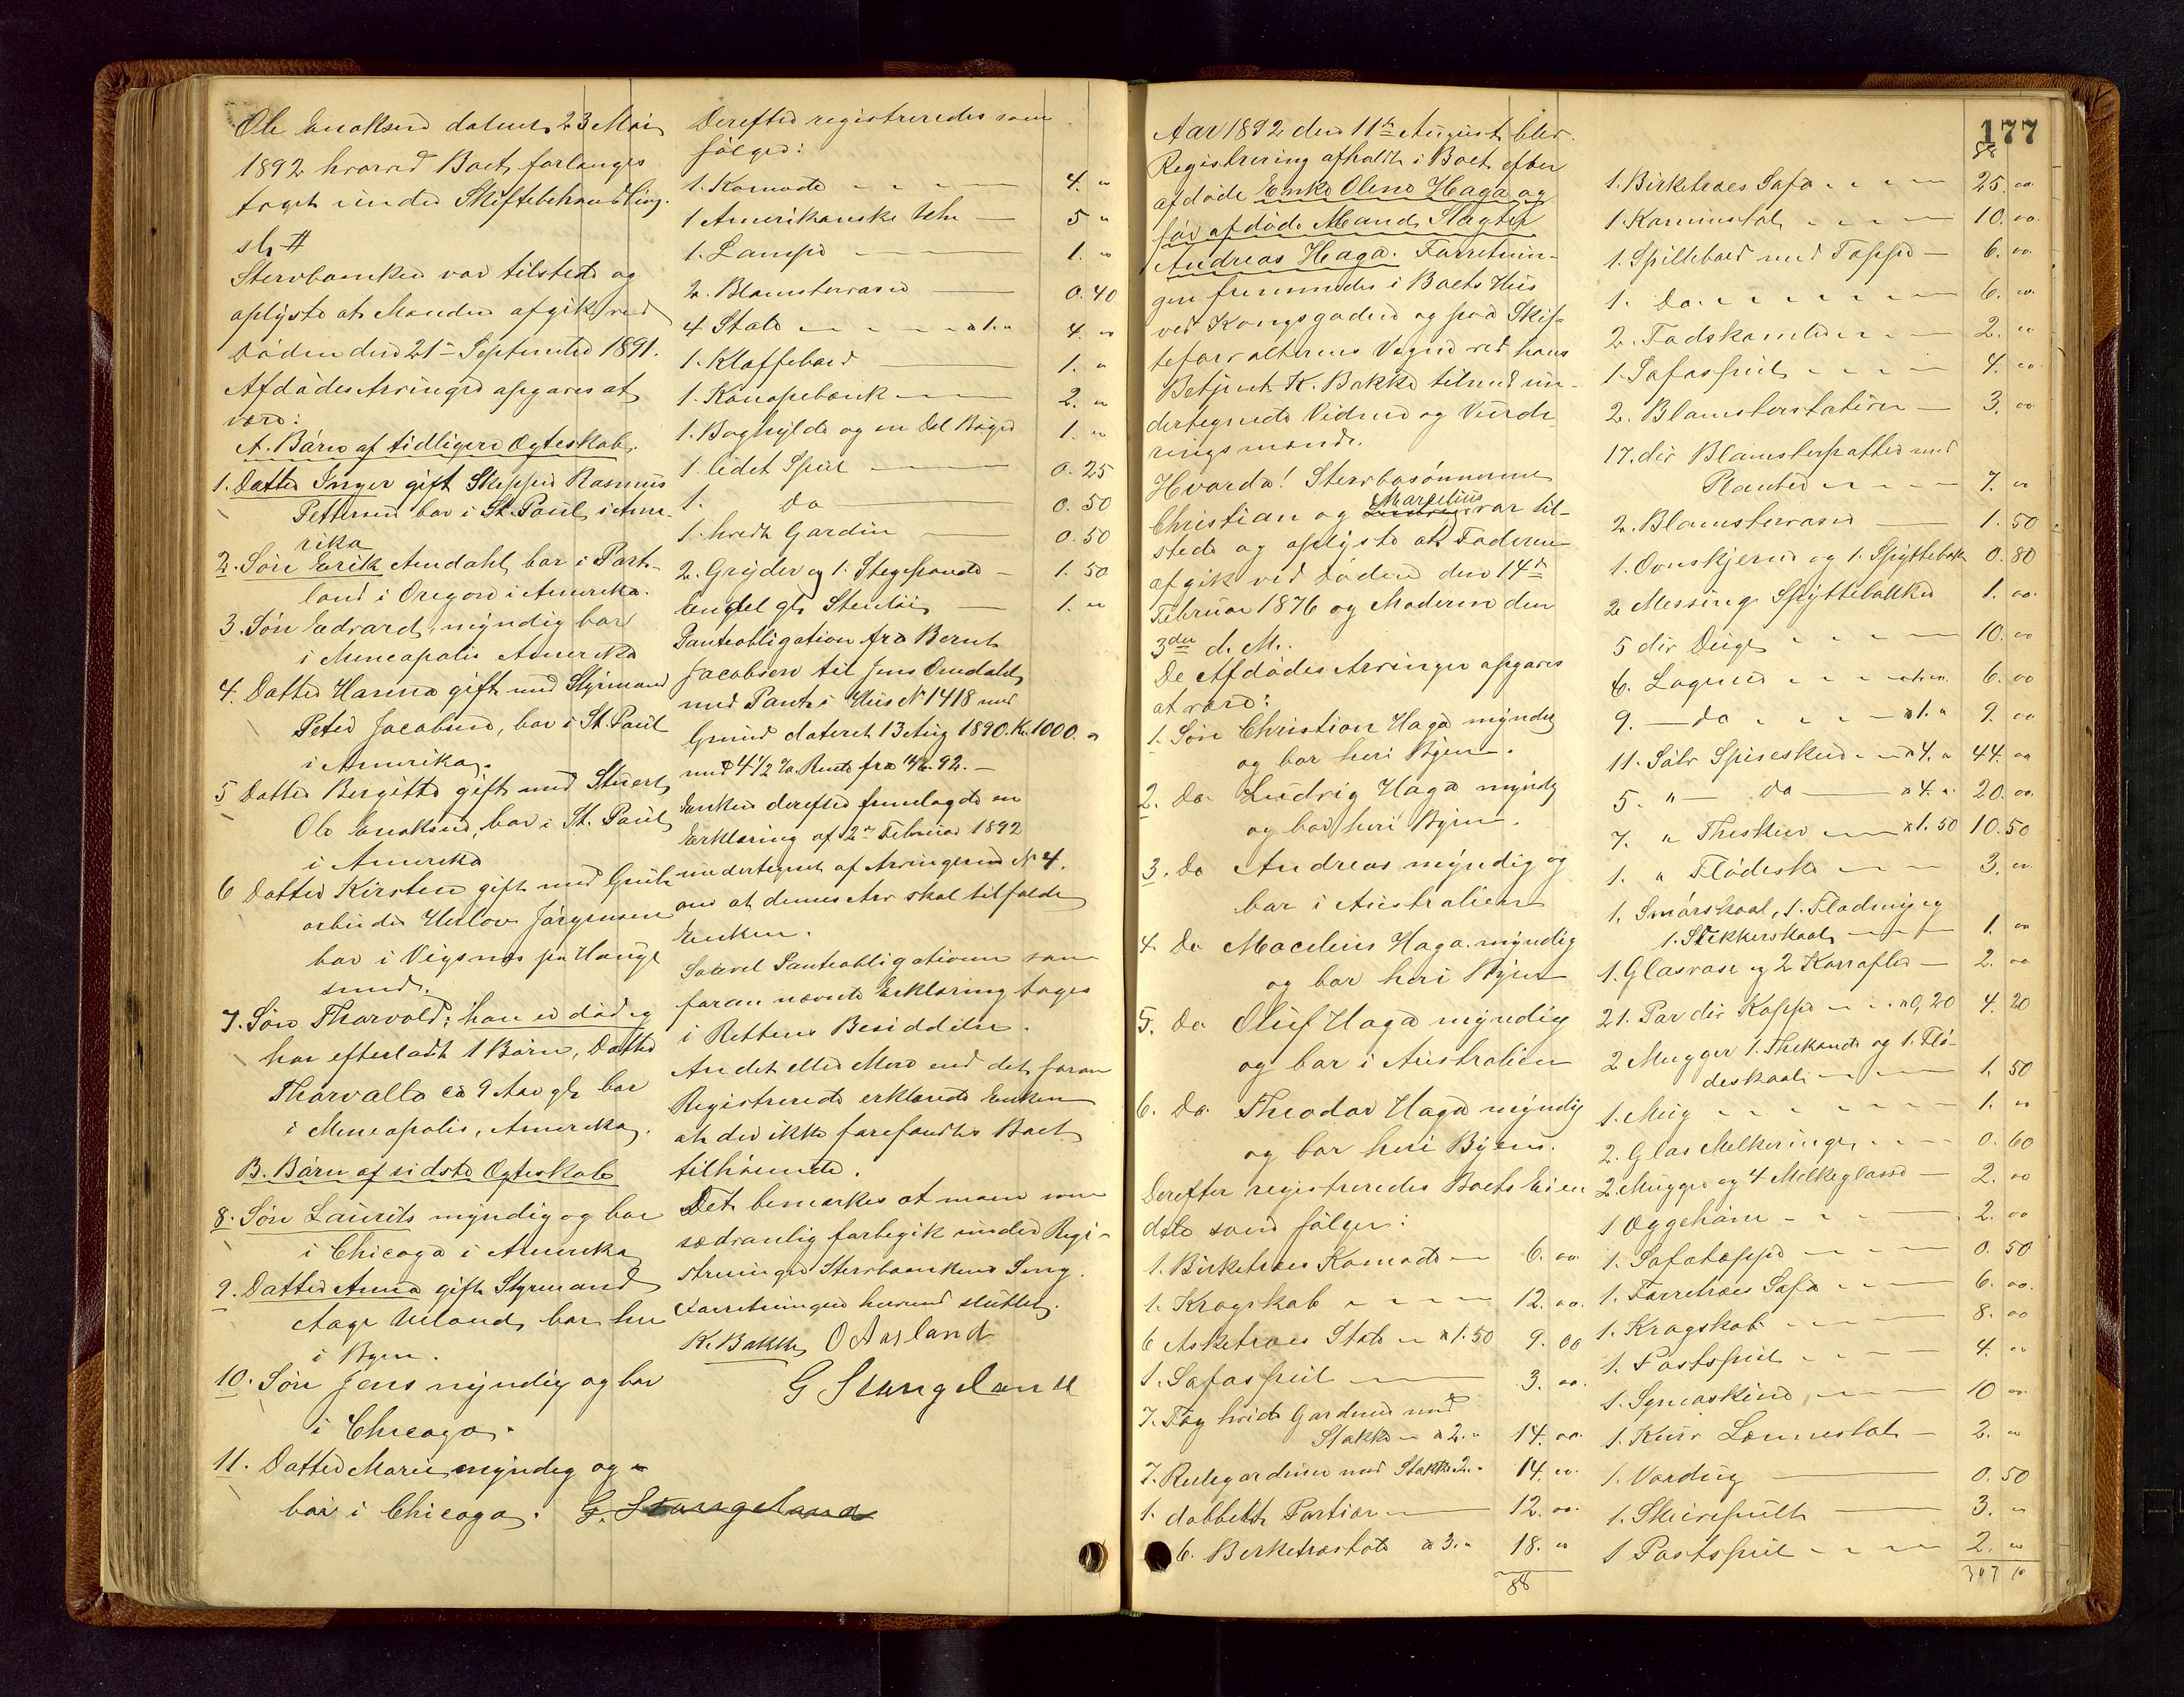 Ole Enoksen datert 23 Mai
1892 hvorved Boet forlanges
taget under Skiftebehandling.
Sterboenken var tilstede og
oplyste at Manden afgik ved
Døden den 21de September 1891.
Afdødes Arvinger opgaves at
være:
A. Børn af tidligere Ægteskab.
1. Datter Inger gift Skipper Rasmus
Pettersen bor i St. Paul i Ame-
rika
2. Søn Erik Amdahl, bor i Port-
land i Oregon i Amerika.
3. Søn Edvard, myndig bor
i Mineapolis Amerika
4. Datter Hanna gift med Styrmand
Peter Jacobsen, bor i St. Paul
i Amerika.
5 Datter Bergitte gift med Stuert
Ole Enoksen, bor i St. Paul
i Amerika
6 Datter Kirsten gift med Grube
arbeider Jørgensen
bor i Vigsnæs pr Hauge
sund.
7. Søn Thorvald; han er død og
har efterladt 1 Barn, Datter
Thorvalla ca 9 Aar gl. bor
i Mineapolis, Amerika.
B. Børn af sidste Ægteskab
8. Søn Laurits myndig og bor
i Chicago i Amerika
9. Datter Anna gift Styrmand
Aage Ueland, bor her
i Byen.
10. Søn Jens myndig og bor
i Chicago.
11. Datter Marie myndig og
bor i Chicago. G. Stangeland
Derefter registreredes som
følger:
1. Komode 4. "
1 Amerikansk Uhr 5 "
1. Lampe 1. "
2. Blomstervaser 0.40
4 Stole a 1. " 4. "
1. Klaffebord 1. "
1. Kanapebænk 2. "
1. Boghylde og en Del Bøger 1. "
1 lidet Speil 0.25
1. Do 0.50
1 hvidt Gardin 0.50
2. Gryder og 1. Stegepande 1.50
Endel gl. Stentøi 1. "
Panteobligation fra Bernt
Jacobsen til Jens Omdahl
med Pant i Hus No 1418 med
Grund dateret 13 Aug 1890. Kr. 1000. "
med 4½ % Rente fra 11/6.92.
Enken derefter fremlagde en
Erklæring af 2den Februar 1892
undertegnet af Arvingerne No 4.
om at dennes Arv skal tilfalde
Enken.
Saavel Panteobligationen som
foran nævnte Erklæring toges
i Rettens Besiddelse.
Andet eller Mere end det foran
Registrerede erklærede Enken
at der ikke forefandtes Boet
tilhørende.
Det bemærkes at man som
sædvanlig forbigik under Regi-
streringen Sterboenkens Seng.
Forretningen hermed sluttet.
K. Bakke O Aarland
G Stangeland
177
Aar 1892 den 11te August blev
Registrering afholdt i Boet efter
afdøde Enke Olene Haga og
før afdøde Mand Slagter
Andreas Haga. Forretnin-
gen fremmedes i Boets Hus
ved Kongsgaden og paa Skif-
teforvalterens Vegne ved hans
Betjent K. Bakke tilmed un-
dertegnede Vidner og Vurde-
ringsmænd.
Hvorda! Sterbosønnerne
Christian og Marcelius var til-
stede og oplyste at Faderen
afgik ved Døden den 14de
Februar 1876 og Moderen den
3die d. M..
De Afdødes Arvinger opgaves
at være:
1. Søn Christian Haga myndig
og bor heri Byen.
2. Do Ludvig Haga myndig
og bor heri Byen.
3. Do Andreas myndig og
bor i Australien
4. Do Macelius Haga myndig
og bor heri Byen
5. Do Oluf Haga myndig
og bor i Australien
6. Do Theodor Haga myndig
og bor heri Byen.
Derefter registreredes Boets Eien
dele som følger:
1. Birketræes Komode 6. oo
1. Kragskab 12. oo.
6 Asketræes Stole a 1.50 9. oo
1. Sofaspeil 3. oo.
7. Fag hvide Gardiner med
Stokke a 2. " 14. oo.
7. Rulegardiner med Stokke 2. " 14. oo.
1. dobbelt Portier 12. oo.
6. Berketræstole a 3. " 18. "
88
88
1. Birketræes Sofa 25. oo
1. Kaminstol 10. oo.
1. Spillebord med Teppe 6. oo.
1. Do 6. oo.
2. Fodskamler 2. "
1. Sofaspeil 4. oo
2. Blomsterstativer 3. oo
17. div Blomsterpotter med
Planter 7. "
2. Blomstervaser 1.50
1. Ovnskjerm og 1. Spyttebak 0.80
2 Messing Spyttebakker 1. oo.
5 div Duge 10. oo
6. Lagener a 1. " 6. oo
9. — do a 1. " 9. oo
11. Sølv Spiseskeer a 4. " 44. oo
5. " — do a 4. " 20. oo
7. " Theskeer a 1.50 10.50
1. " Flødeske 3. "
1. Smørskaal, 1. Flødmug og
1. Sukkerskaal 1. oo
1. Glasvase og 2 Karafler 2. oo
21. Par div Kopper a 0,20 4.20
2 Mugger 1. Thekande og 1. Flø-
deskaal 1.50
1. Mug 1. "
2. Glas Melkeringer 0.60
2 Mugger og 4 Melkeglasse 2. oo
1 Æggehøne 2. oo
1. Sofateppe 0.50
1. Furretræes Sofa 6. oo.
1. Kragskab 8. oo
1. Postspeil 4. "
1. Symaskine 10 oo
1. Kurv Lænestol 2. "
1. Vardug 0.50
1. Skrivepult 3. "
1 Postspeil 2. "
307 10